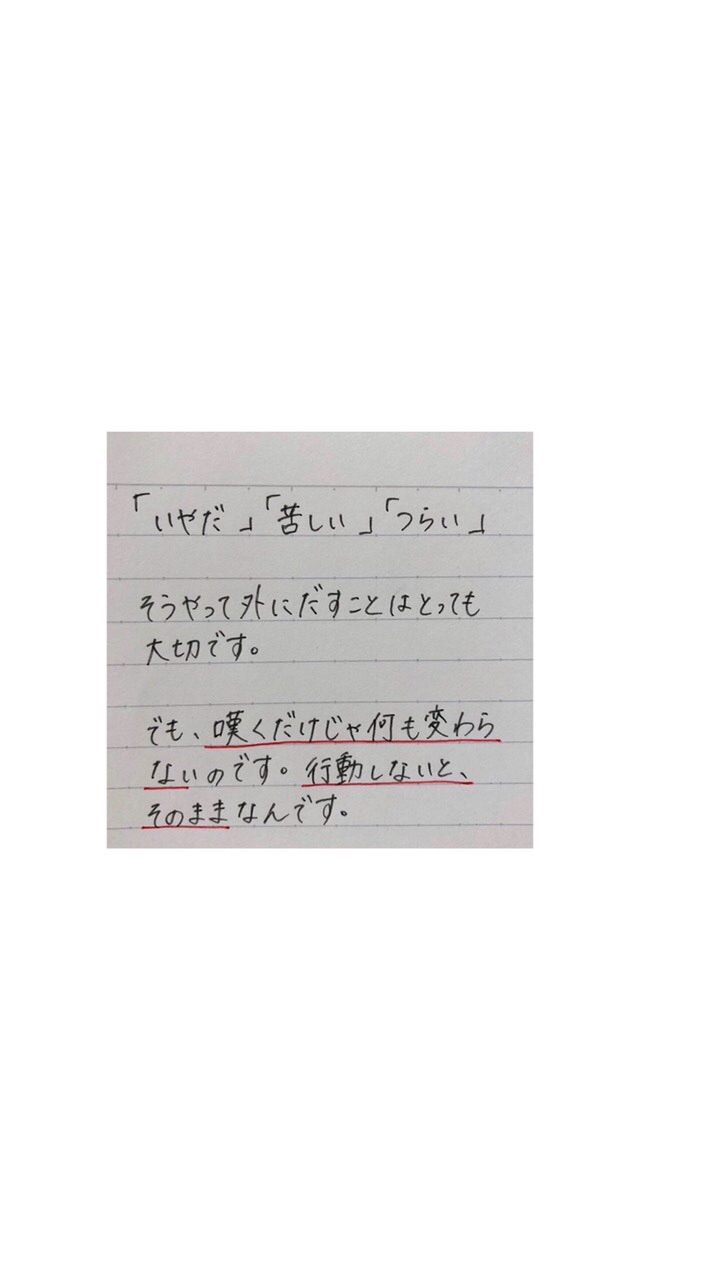 「いやだ」「苦しい」「つらい」
そうやって外にだすことはとっても
大切です。
でも、嘆くだけじゃ何も変わら
ないのです。行動しないと、
そのままなんです。